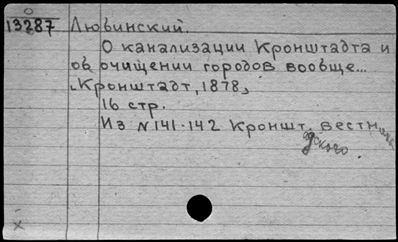 13287 Лювинский.
О канализации Кронштадта и
об очищении городов вообще...
[Кронштадт, 1878]
16 стр.
Из N 141-142 Кроншт. вестн